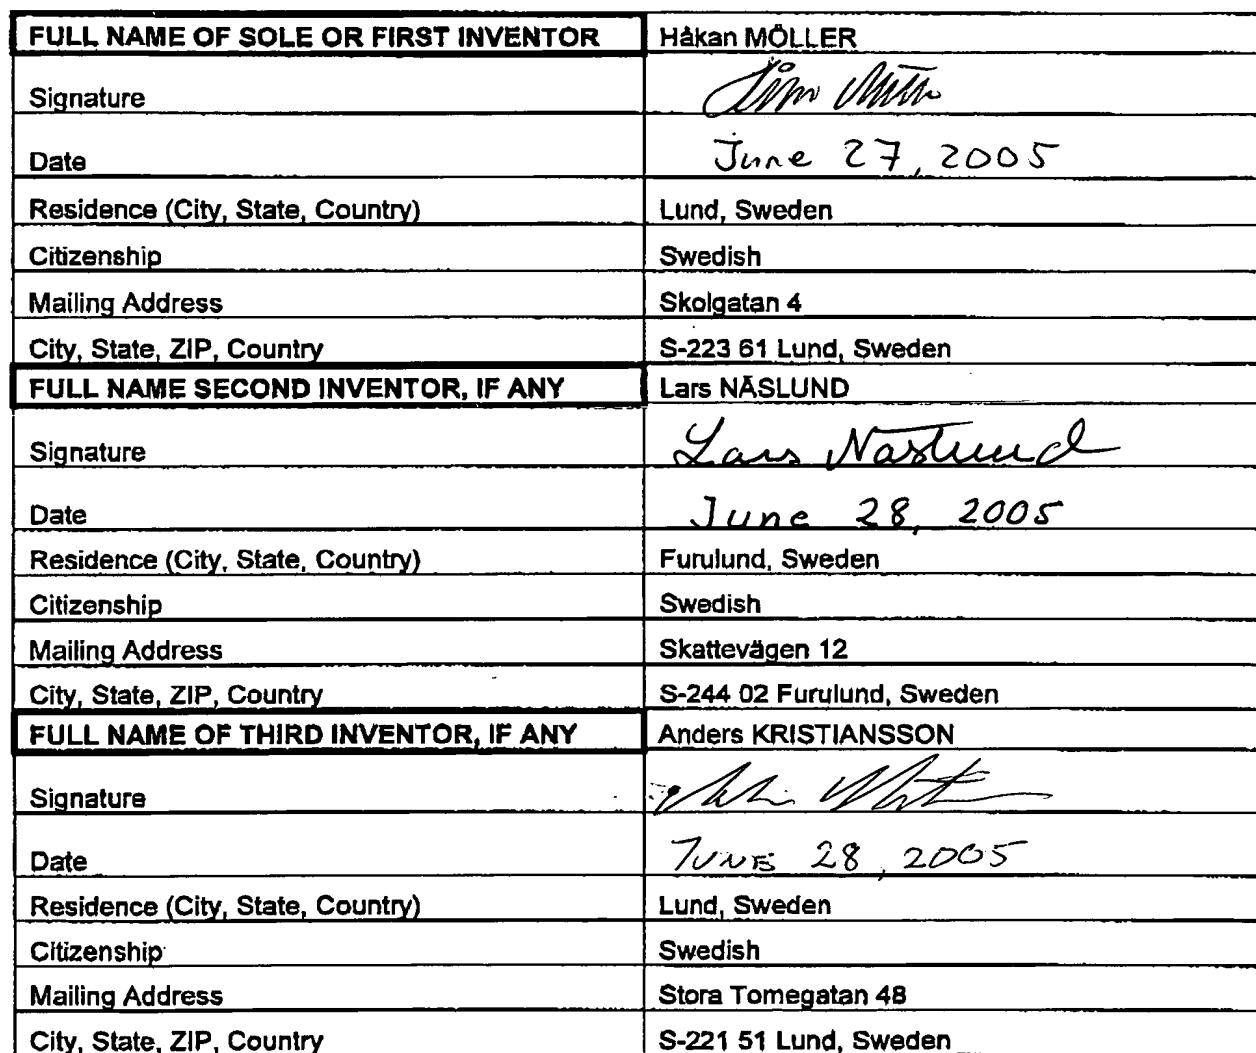 FULL NAME OF SOLE OR FIRST INVENTOR Håkan MÖLLER
Signature
Date June 27, 2005
Residence (City, State, Country) Lund, Sweden
Citizenship Swedish
Mailing Address Skolgatan 4
City, State, ZIP, Country S-223 61 Lund, Sweden
FULL NAME SECOND INVENTOR, IF ANY Lars NÄSLUND
Signature Lars Naslund
Date June 28, 2005
Residence (City, State, Country) Furulund, Sweden
Citizenship Swedish
Mailing Address Skattevägen 12
City, State, ZIP, Country S-244 02 Furulund, Sweden
FULL NAME OF THIRD INVENTOR, IF ANY Anders KRISTIANSSON
Signature
Date JUNE 28, 2005
Residence (City, State, Country) Lund, Sweden
Citizenship Swedish
Mailing Address Stora Tomegatan 48
City, State, ZIP, Country S-221 51 Lund, Sweden